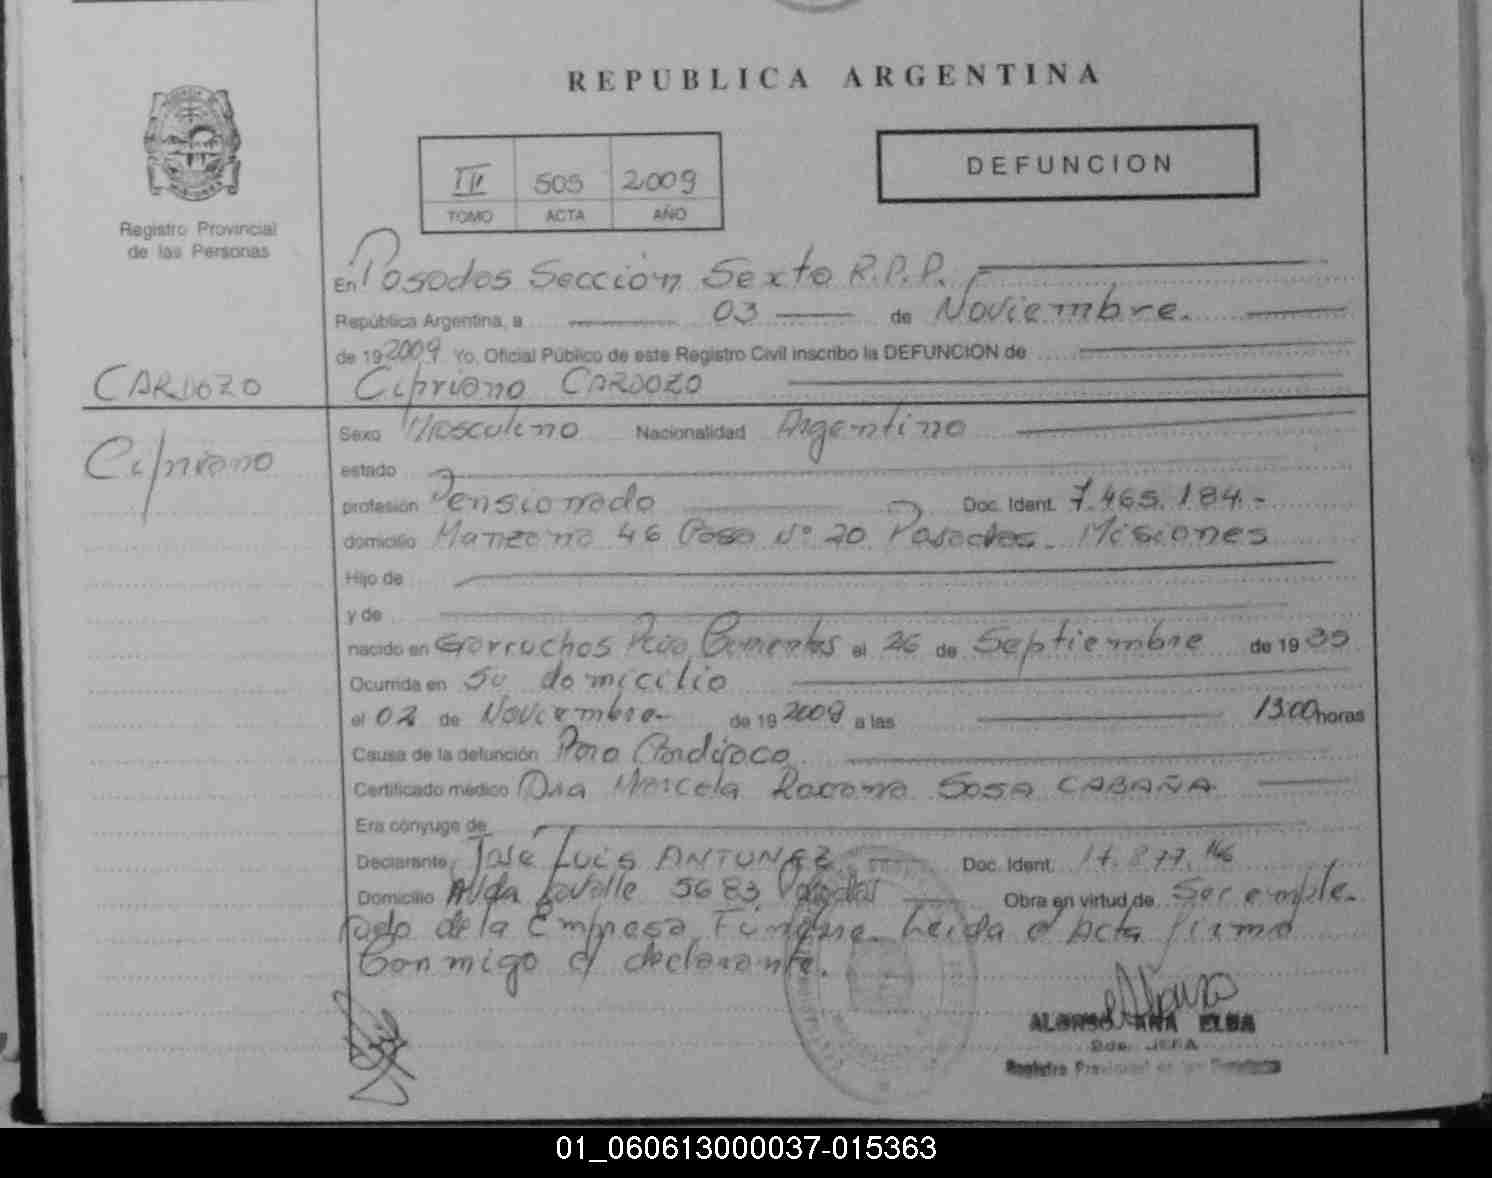 REPUBLICA ARGENTINA
DEFUNCION
III 505 2009
TOMO ACTA AÑO
Registro Provincial
de las Personas
En Posadas Sección Sexta R.P.P.
República Argentina, a 03 de Noviembre.
de 19 2009 Yo, Oficial Público de este Registro Civil inscribo la DEFUNCION de
CARDOZO
Cipriano CARDOZO
Cipriano
Sexo Masculino Nacionalidad Argentino
estado
profesión Pensionado Doc. Ident. 7.465.184.-
domicilio Manzana 46 Casa Nº 20 Posadas - Misiones
Hijo de
y de
nacido en Garruchos Pcia Corrientes el 26 de Septiembre de 19 35
Ocurrida en Su domicilio
el 02 de Noviembre de 19 2009 a las 13:00 horas
Causa de la defunción Paro Cardíaco
Certificado médico Dra Marcela Roxana SOSA CABAÑA
Era cónyuge de
Declarante Jose Luis ANTUNEZ Doc. Ident. 17.877.
Domicilio Avda Lavalle 5683 Posadas Obra en virtud de Ser emple-
ado de la Empresa Fúnebre. Leída el Acta firma
Conmigo el declarante.
ALONSO ANA ELBA
2da. JEFA
Registro Provincial de las Personas
01_060613000037-015363